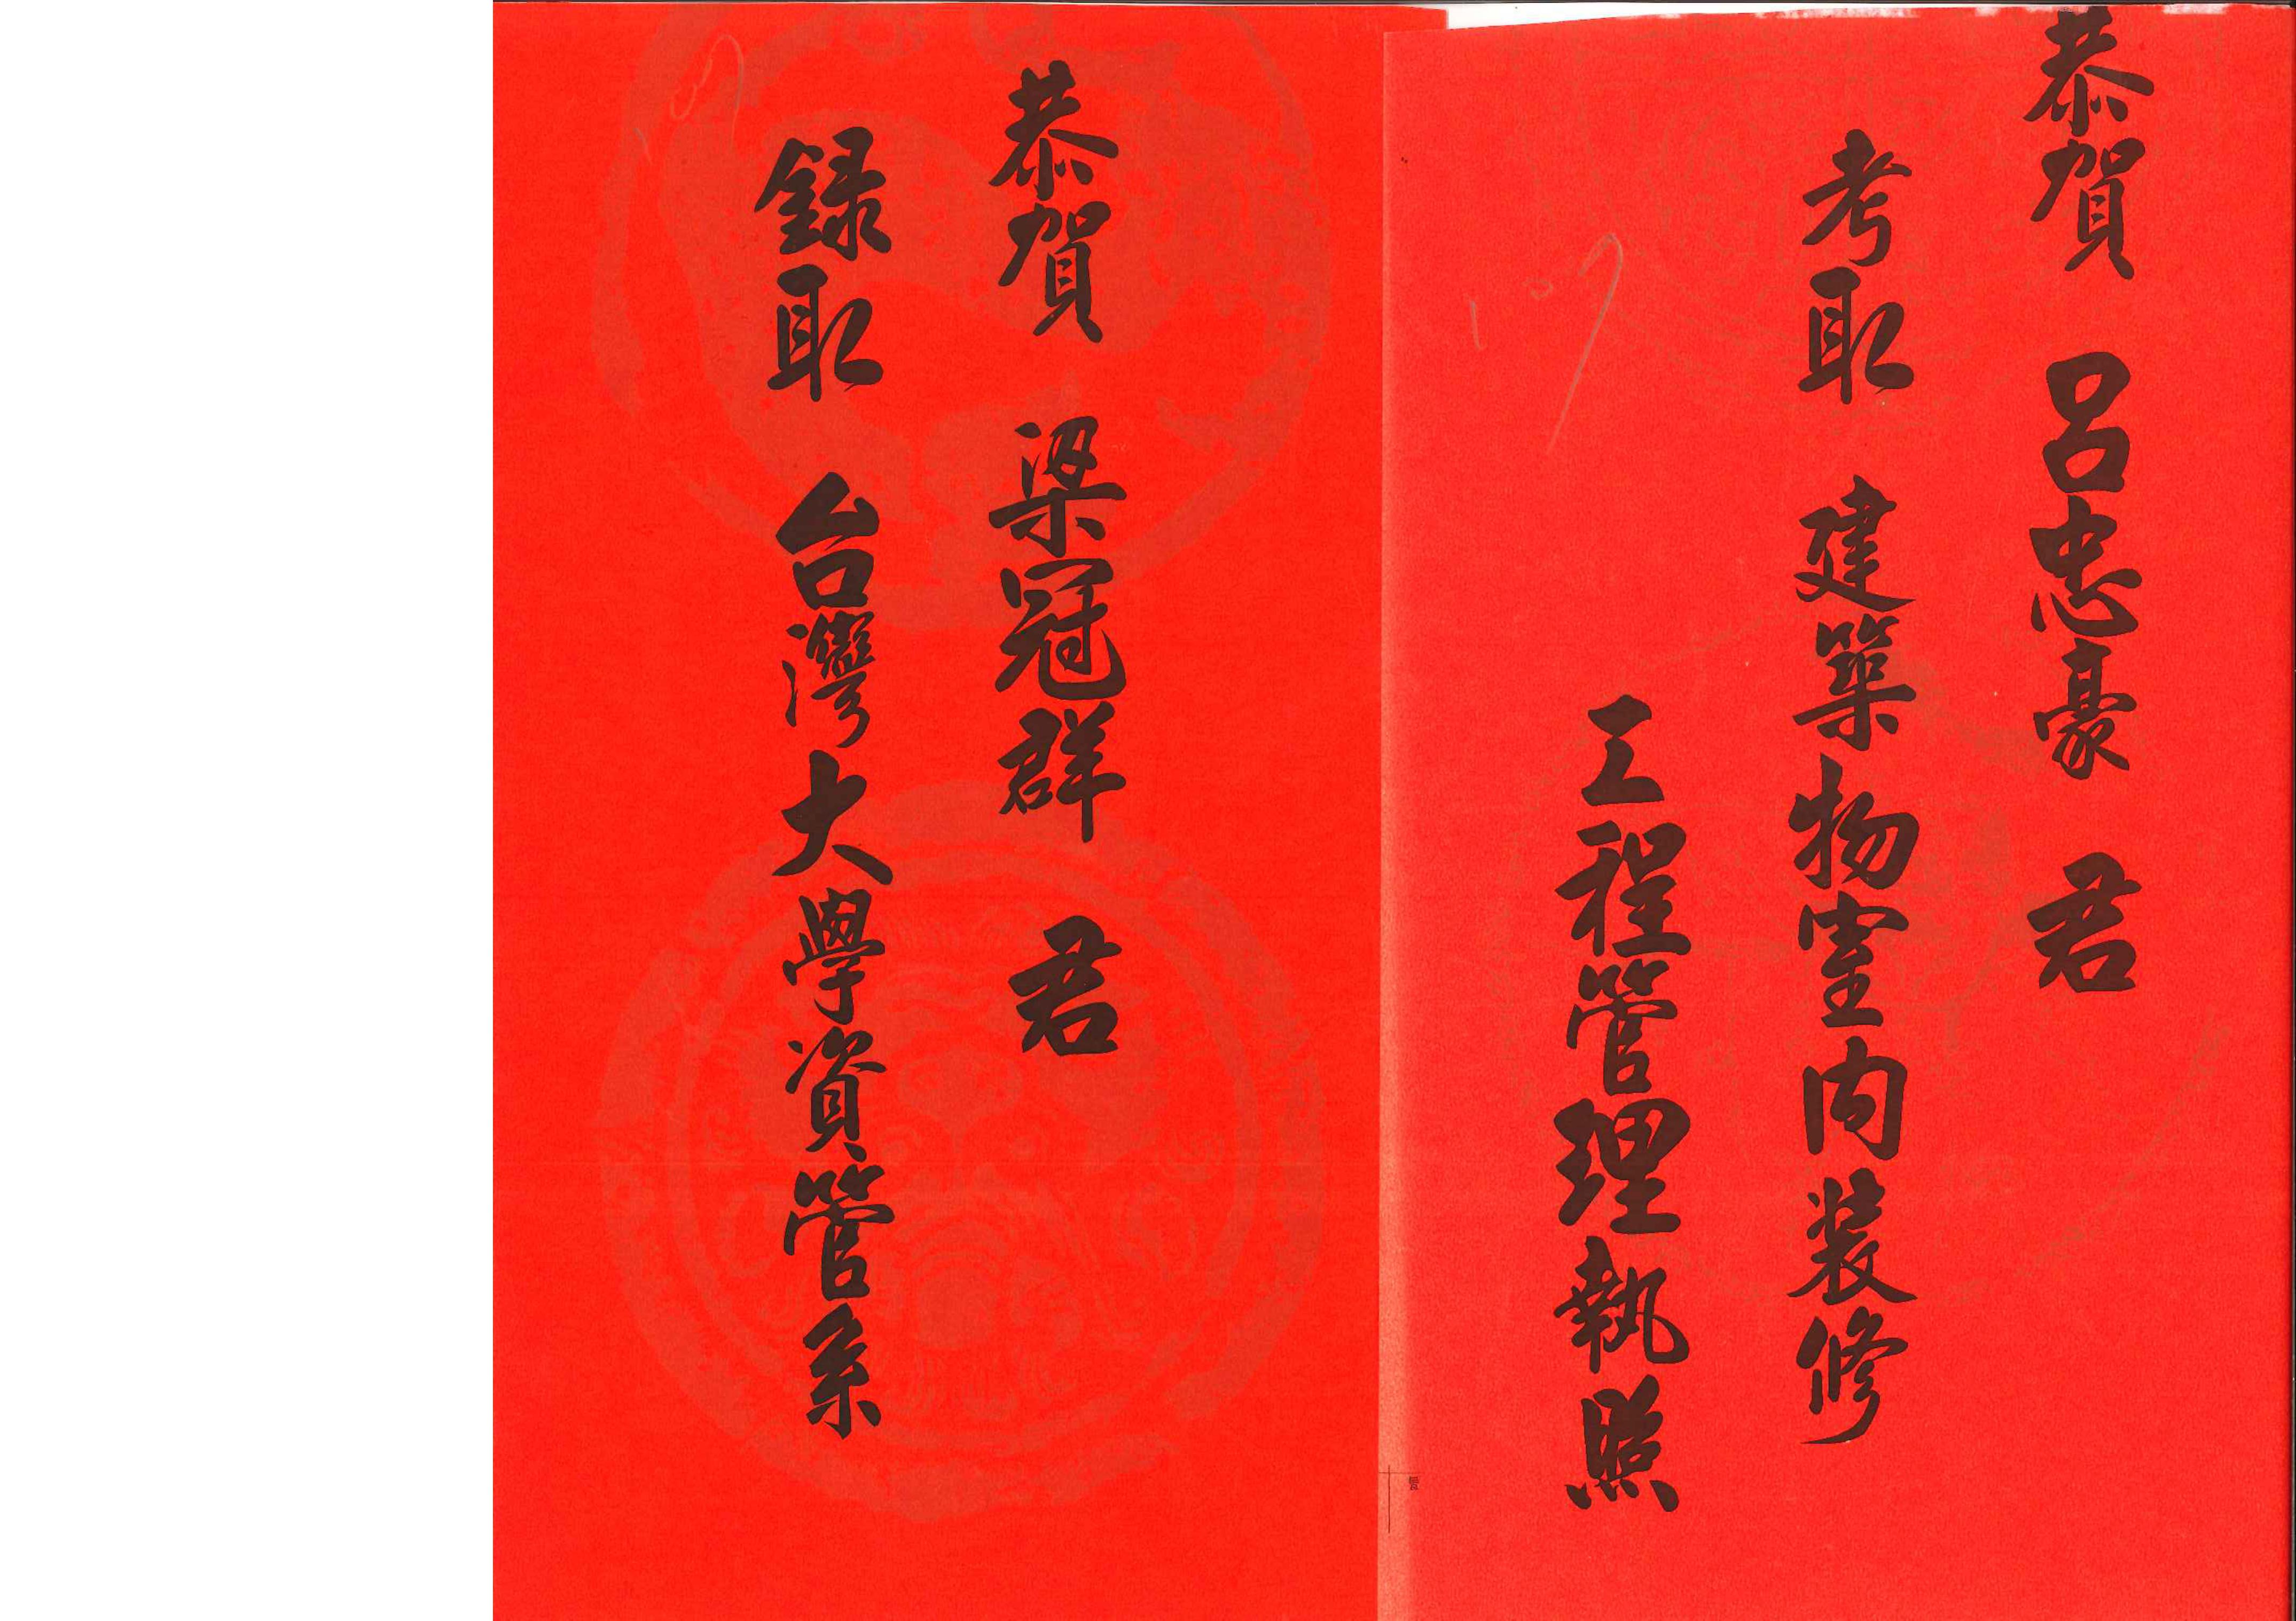 恭賀 呂忠豪 君
考取 建築物室内装修
工程管理執照
107
恭賀 梁冠群 君
録取 台灣大學資管系
107